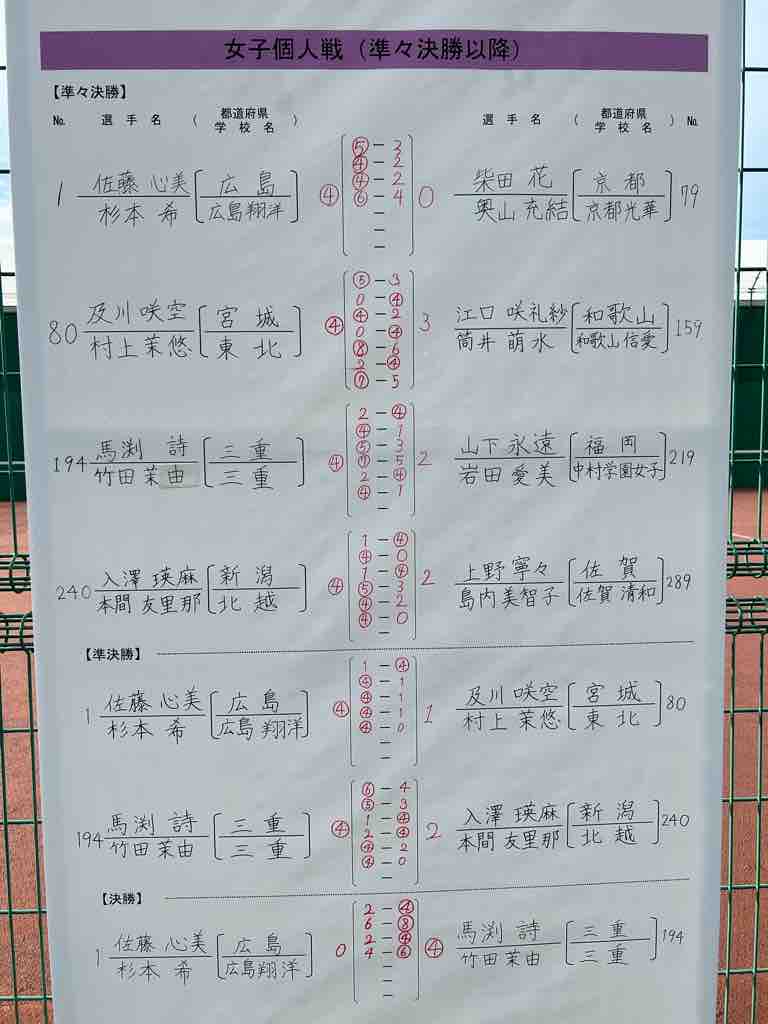 女子個人戦（準々決勝以降）
【準々決勝】
№ 選手名 （ 都道府県 学校名 ） 選手名 （ 都道府県 学校名 ） №
1 佐藤 心美 杉本 希 [広島 広島翔洋] ④ 0 柴田 花 奥山 充結 [京都 京都光華] 79
⑤ - 3
④ - 2
④ - 2
⑥ - 4
-
-
-
80 及川 咲空 村上 茉悠 [宮城 東北] ④ 3 江口 咲礼紗 筒井 萌水 [和歌山 和歌山信愛] 159
⑤ - 3
0 - ④
④ - 2
0 - ④
⑧ - 6
2 - ④
⑦ - 5
194 馬渕 詩 竹田 茉由 [三重 三重] ④ 2 山下 永遠 岩田 愛美 [福岡 中村学園女子] 219
2 - ④
④ - 1
⑤ - 3
⑦ - 5
2 - ④
④ - 1
-
240 入澤 瑛麻 本間 友里那 [新潟 北越] ④ 2 上野 寧々 島内 美智子 [佐賀 佐賀清和] 289
1 - ④
④ - 0
1 - ④
⑤ - 3
④ - 2
④ - 0
-
【準決勝】
1 佐藤 心美 杉本 希 [広島 広島翔洋] ④ 1 及川 咲空 村上 茉悠 [宮城 東北] 80
1 - ④
④ - 1
④ - 1
④ - 1
④ - 0
-
-
194 馬渕 詩 竹田 茉由 [三重 三重] ④ 2 入澤 瑛麻 本間 友里那 [新潟 北越] 240
⑥ - 4
⑤ - 3
1 - ④
2 - ④
④ - 2
④ - 0
-
【決勝】
1 佐藤 心美 杉本 希 [広島 広島翔洋] 0 ④ 馬渕 詩 竹田 茉由 [三重 三重] 194
2 - ④
6 - ⑧
2 - ④
4 - ⑥
-
-
-